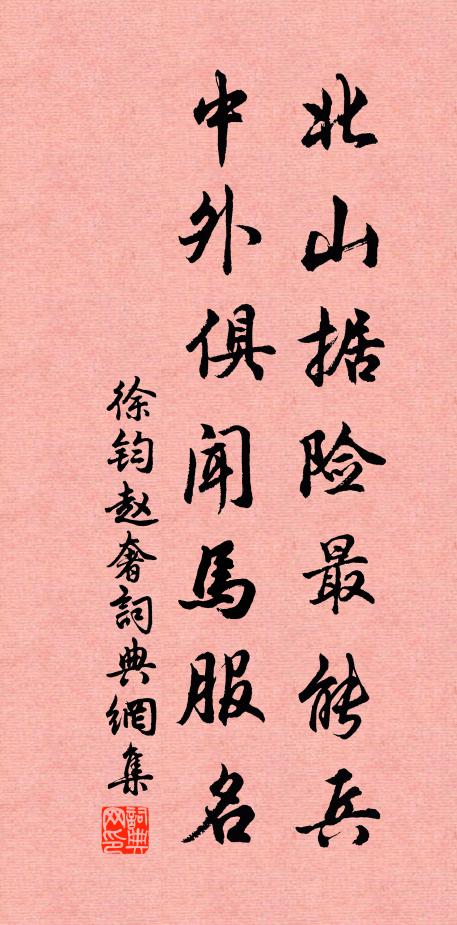 北山据险最能兵
中外俱闻馬服名
徐钧赵奢詞典網集
詞典网印